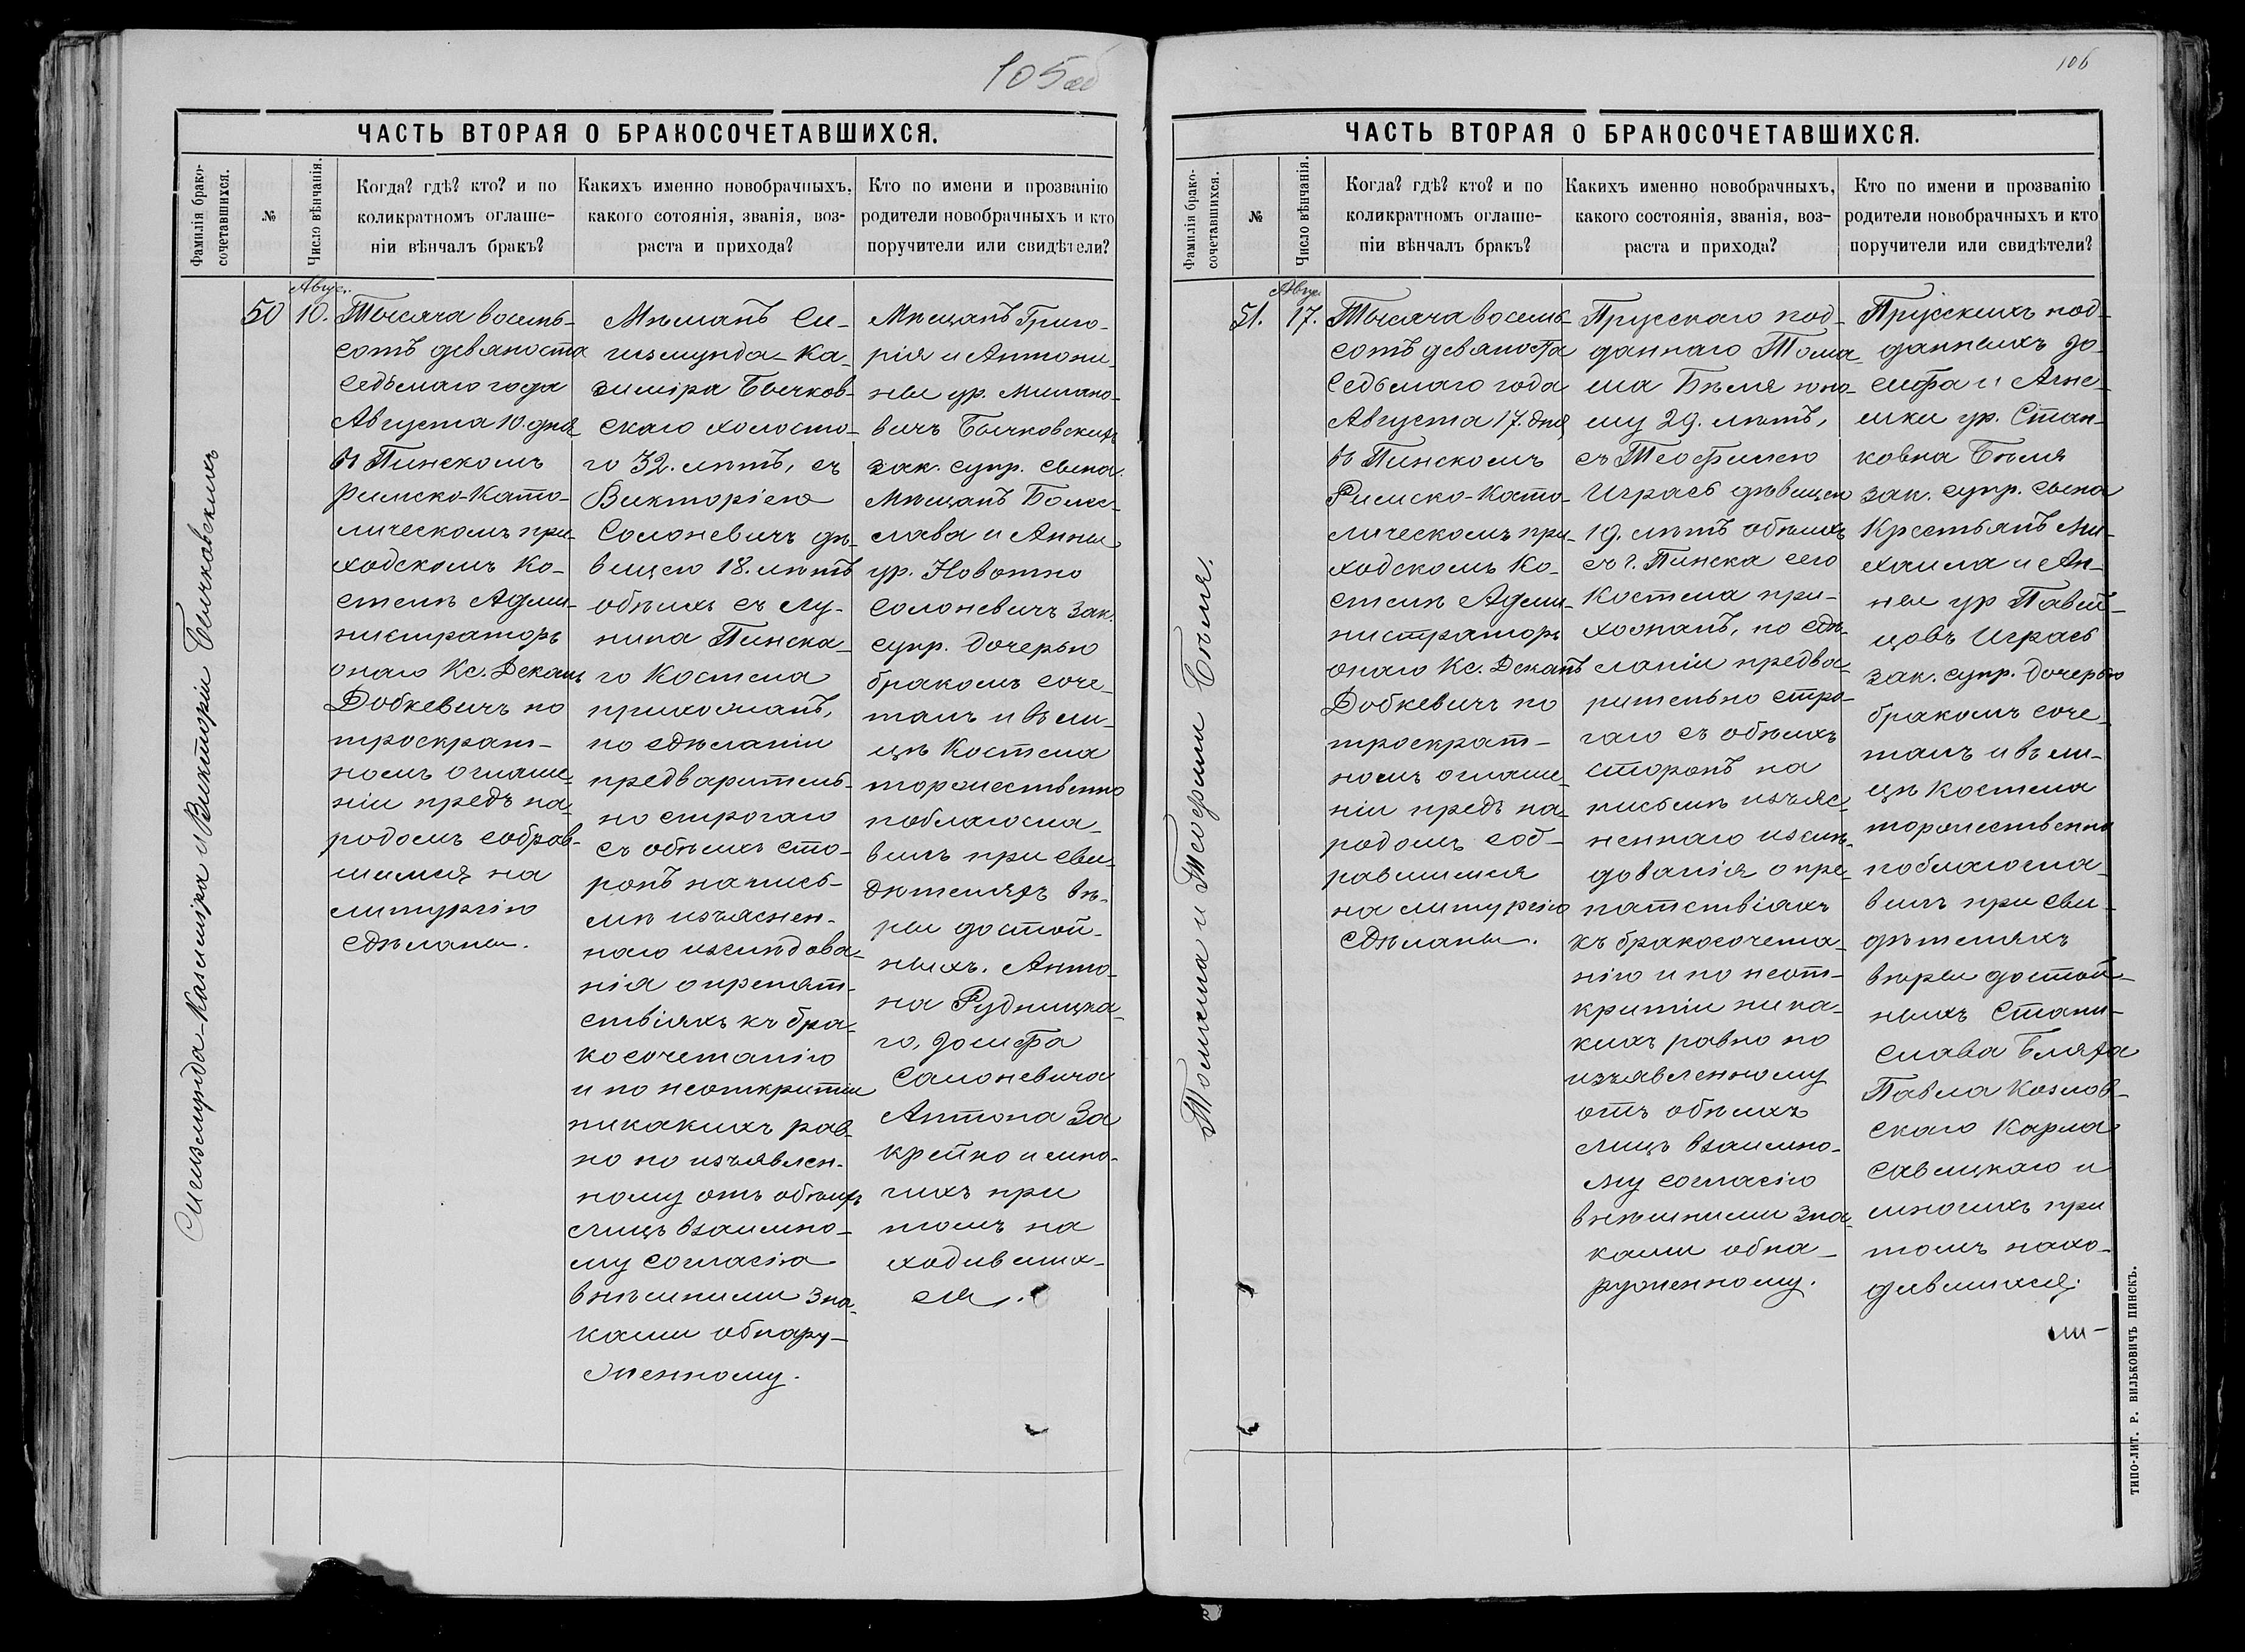 105 об
ЧАСТЬ ВТОРАЯ О БРАКОСОЧЕТАВШИХСЯ.
Фамилія брако-
сочетавшихся.
№
Число вѣнчанія.
Когда? гдѣ? кто? и по
коликратномъ оглаше-
ніи вѣнчалъ бракъ?
Какихъ именно новобрачныхъ,
какого сотоянія, званія, воз-
раста и прихода?
Кто по имени и прозванію
родители новобрачныхъ и кто
поручители или свидѣтели?
Сигизмунда-Казиміра и Викторіи Бычковскихъ
50
Авгус.
10.
Тысяча восемь-
сотъ девяноста
седьмаго года
Августа 10. дня
въ Пинскомъ
Римско-Като-
лическомъ при-
ходскомъ Ко-
стелѣ Адми-
нистраторъ
онаго Кс. Деканъ
Добкевичъ по
троекрат-
номъ оглаше-
ніи предъ на-
родомъ собрав-
шимся на
литургію
сдѣланы.
Мѣщанъ Си-
гизмунда-Ка-
зиміра Бычков-
скаго холосто-
го 32. лѣтъ, съ
Викторіею
Солоневичъ дѣ-
вицею 18. лѣтъ
обѣихъ съ Лу-
нина Пинска-
го Костела
прихожанъ,
по сдѣланіи
предваритель-
но строгаго
съ обѣихъ сто-
ронъ на пись-
мѣ изъяснен-
наго изслѣдова-
нія о препят-
ствіяхъ къ бра-
косочетанію
и по неоткритіи
никакихъ рав-
но по изъявлен-
ному отъ обѣихъ
лицъ взаимно-
му согласію
внѣшними зна-
ками обнару-
женному.
Мѣщанъ Григо-
рія и Антони-
ны ур. Милано-
вичъ Бычковскихъ
зак. супр. сына.
Мѣщанъ Болес-
лава и Анны
ур. Новотно
Солоневичъ зак.
супр. дочерью
бракомъ соче-
талъ и въ ли-
цѣ Костела
торжественно
поблагосла-
вилъ при сви-
дѣтеляхъ вѣ-
ры достой-
ныхъ. Анто-
на Рудницка-
го, Іосифа
Солоневича
Антона За
крейко и мно-
гихъ при
томъ на
ходивших-
ся.
106
ЧАСТЬ ВТОРАЯ О БРАКОСОЧЕТАВШИХСЯ.
Фамилія брако-
сочетавшихся.
№
Число вѣнчанія.
Когда? гдѣ? кто? и по
коликратномъ оглаше-
ніи вѣнчалъ бракъ?
Какихъ именно новобрачныхъ,
какого состоянія, званія, воз-
раста и прихода?
Кто по имени и прозванію
родители новобрачныхъ и кто
поручители или свидѣтели?
Томаша и Теофили Бѣмя.
51.
Авгус.
17.
Тысяча восемь-
сотъ девяноста
седьмаго года
Августа 17. дня
въ Пинскомъ
Римско-Като-
лическомъ при-
ходскомъ Ко-
стелѣ Адми-
нистраторъ
онаго Кс. Деканъ
Добкевичъ по
троекрат-
номъ оглаше-
ніи предъ на-
родомъ соб-
равшимся
на литургію
сдѣланы.
Прусскаго под-
даннаго Тома-
ша Бѣмя юно-
шу 29. лѣтъ,
съ Теофилею
Играсъ дѣвицею
19. лѣтъ обѣихъ
съ г. Пинска сего
Костела при-
хожанъ, по сдѣ-
ланіи предва-
рительно стро-
гаго съ обѣихъ
сторонъ на
письмѣ изъяс-
неннаго изслѣ-
дованія о пре-
пятствіяхъ
къ бракосочета-
нію и по неот-
критіи ника-
кихъ равно по
изъявленному
отъ обѣихъ
лицъ взаимно-
му согласію
внѣшними зна-
ками обна-
руженному.
Прусскихъ под-
данныхъ Іо-
сифа и Агне-
шки ур. Стан-
ковна Бѣмя
зак. супр. сына
Крестьянъ Ми-
хаила и Ан-
ны ур Павли-
цовъ Играсъ
зак. супр. дочерью
бракомъ соче-
талъ и въ ли-
цѣ Костела
торжественно
поблагосла-
вилъ при сви-
дѣтеляхъ
вѣры достой-
ныхъ Стани-
слава Бляха
Павла Козлов-
скаго Карла
Савицкаго и
многихъ при
томъ нахо-
дившихся.
ТИПО-ЛИТ. Р. ВИЛЬКОВИЧЪ ПИНСКЪ.